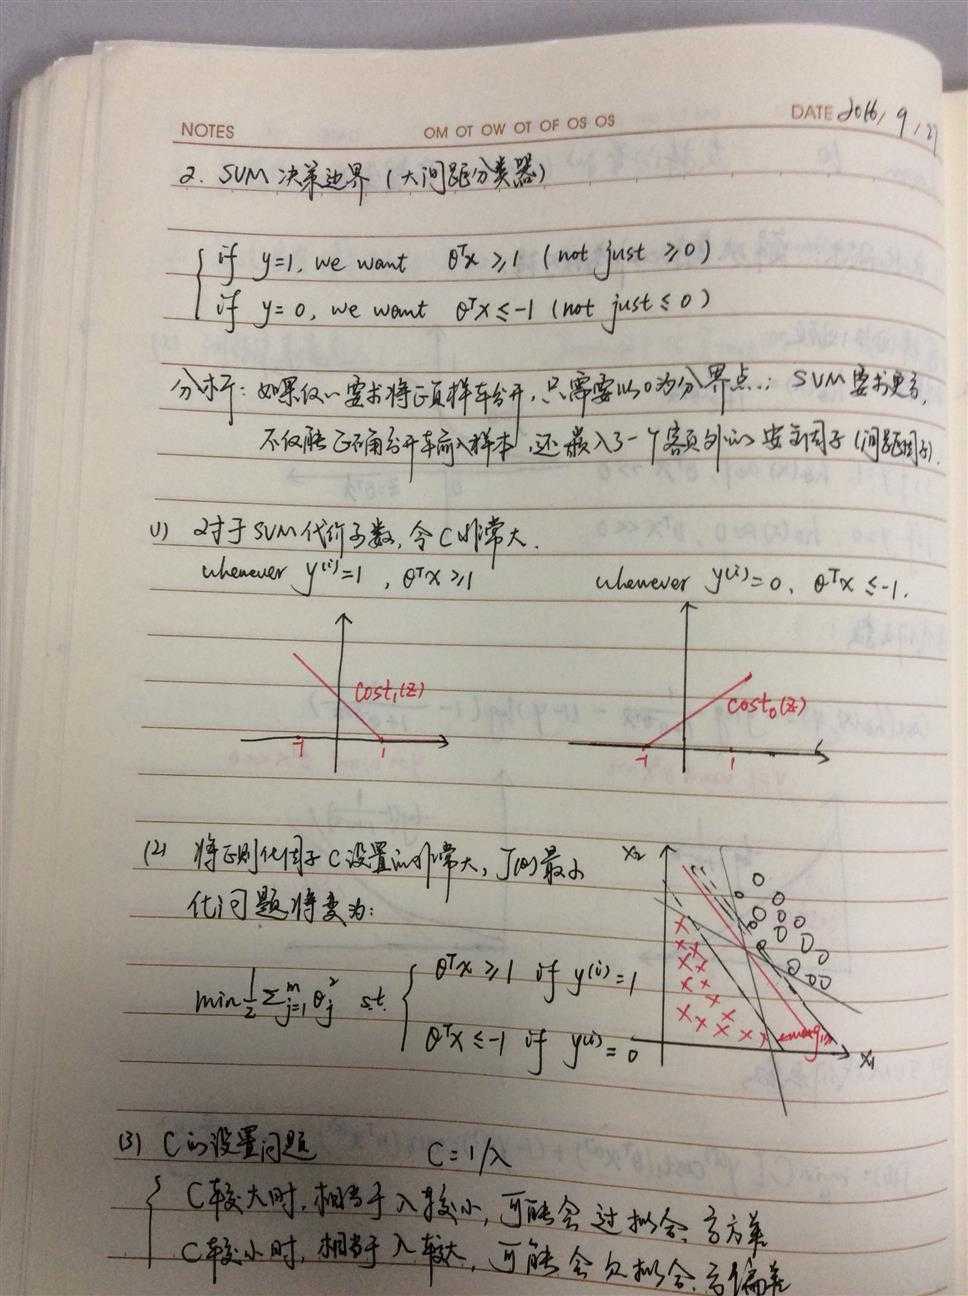 NOTES
OM OT OW OT OF OS OS
DATE 2016/9/27
2. SVM 决策边界 (大间距分类器)
if y=1, we want θᵀx ≥ 1 (not just ≥ 0)
if y=0, we want θᵀx ≤ -1 (not just ≤ 0)
分析: 如果仅仅要求将正负样本分开, 只需要以0为分界点; SVM要求更高,
不仅能正确分开输入样本, 还嵌入了一个额外的安全因子(间距因子).
(1) 对于SVM代价函数, 令C非常大.
whenever y⁽ⁱ⁾=1, θᵀx ≥ 1
whenever y⁽ⁱ⁾=0, θᵀx ≤ -1.
cost₁(z)
-1 1
cost₀(z)
-1 1
(2) 将正则化因子C设置的非常大, J(θ)最小
化问题将变为:
min ½ Σᵐⱼ₌₁ θⱼ² s.t.
θᵀx ≥ 1 if y⁽ⁱ⁾=1
θᵀx ≤ -1 if y⁽ⁱ⁾=0
x₂
margin
x₁
(3) C的设置问题 C=1/λ
C较大时, 相当于λ较小, 可能会过拟合, 高方差
C较小时, 相当于λ较大, 可能会欠拟合, 高偏差